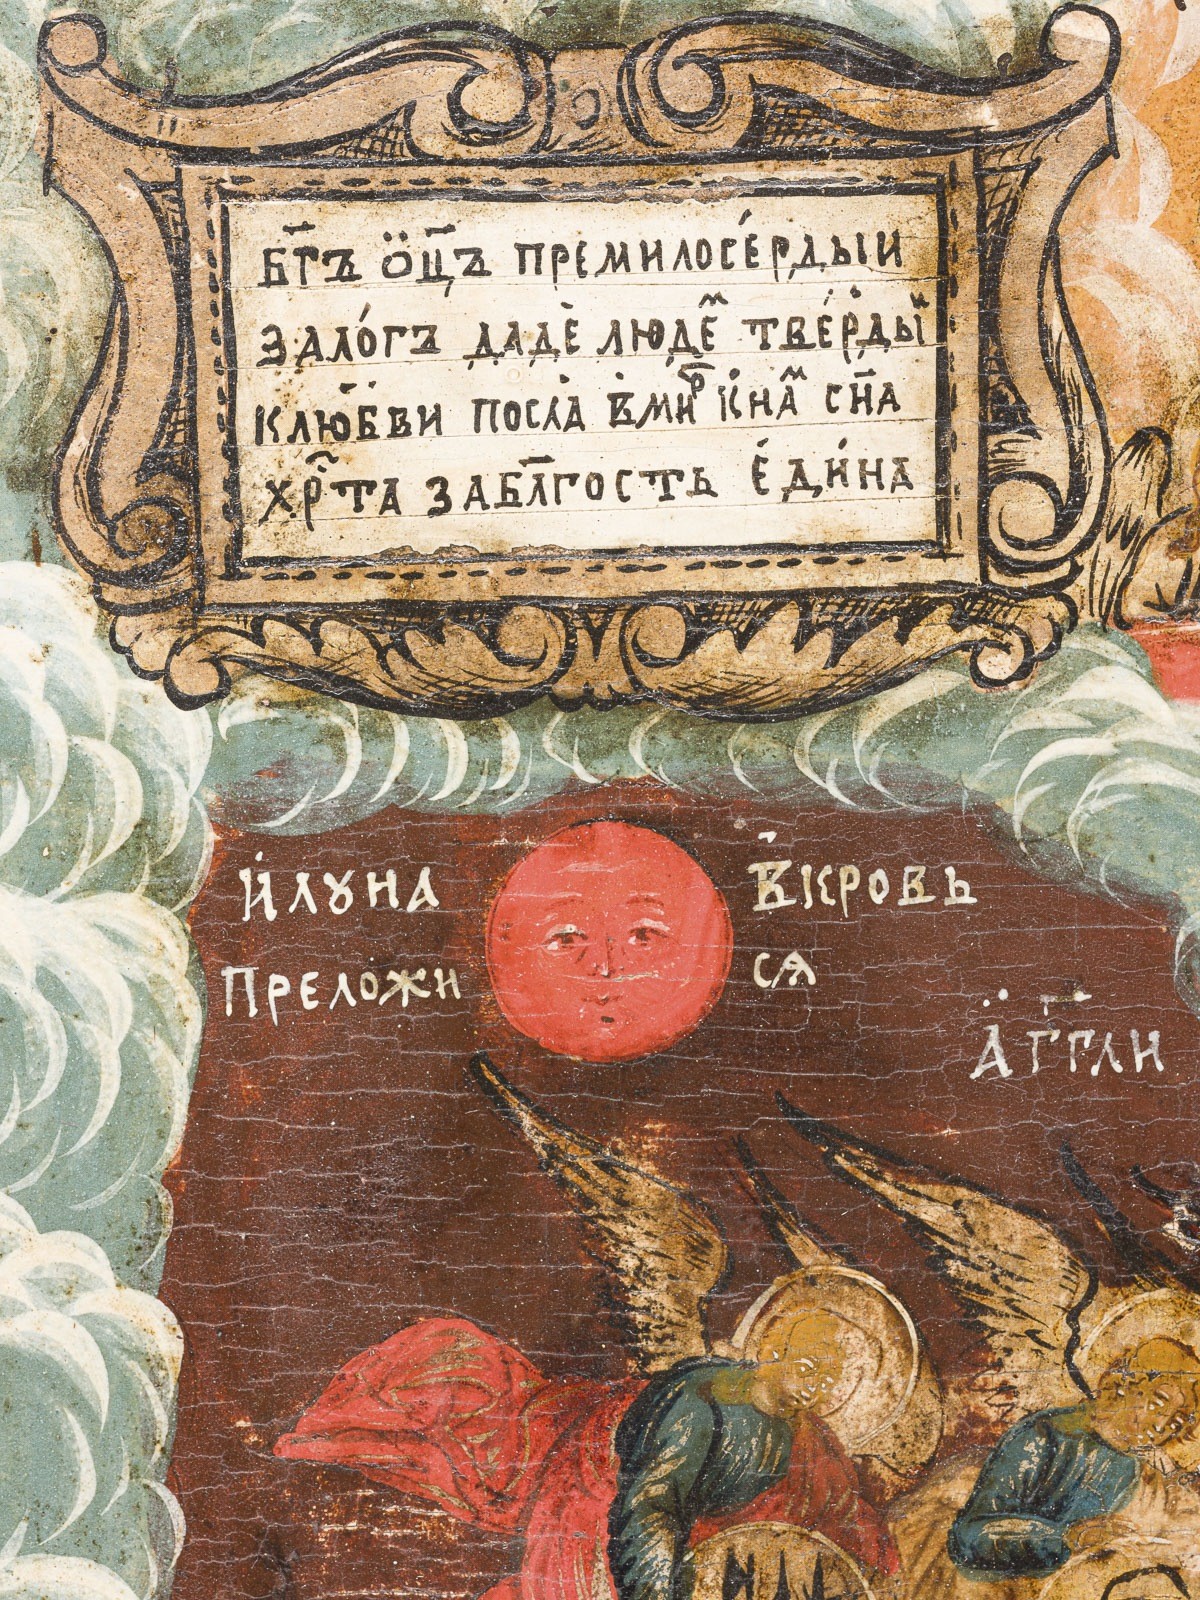 Бг҃ъ ѻ҆ц҃ъ премилосе́рдыи
зало́гъ дадѐ людеⷨ тве́рдыⷤ
клю́бви посла̀ в̾миⷬ к̾наⷨ сн҃а
хрⷭ҇та забл҃гость е҆ди́на
И҆ луна в̾кровь
преложи сѧ
А҆гг҃ли